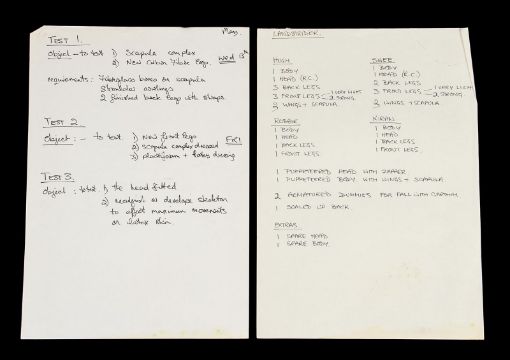 May.
TEST 1.
Object - to test 1) Scapula complex
2) New Carbon Fibre legs. Wed 13th
requirements: Fibreglass bones or scapula
2 finished back legs with straps
TEST 2
Object: - to test 1) New front legs
2) Scapula complex dressed
3) + dressing
Fri
TEST 3.
Object: to test. 1) the head fitted
2) redesign or develope skeleton
to affect maximum movements
on latex skin.
LANDSTRIDER.
HUGH
1 BODY
1 HEAD (R.C.)
3 BACK LEGS
3 FRONT LEGS 1 VERY LIGHT
2 STRONG
2 WINGS + SCAPULA
SWEE
1 BODY
1 HEAD (R.C.)
2 BACK LEGS
3 FRONT LEGS 1 VERY LIGHT
2 STRONG
2 WINGS + SCAPULA
ROBBIE
1 BODY
1 HEAD
1 BACK LEGS
1 FRONT LEGS
KIRAN
1 BODY
1 HEAD
1 BACK LEGS
1 FRONT LEGS.
1 PUPPETEERED HEAD WITH
1 PUPPETEERED BODY WITH WINGS + SCAPULA
2 ARMATURED DUMMIES FOR FALL WITH GARTHIM.
1 SCALED UP BACK
EXTRAS
1 SPARE HEAD
1 SPARE BODY.